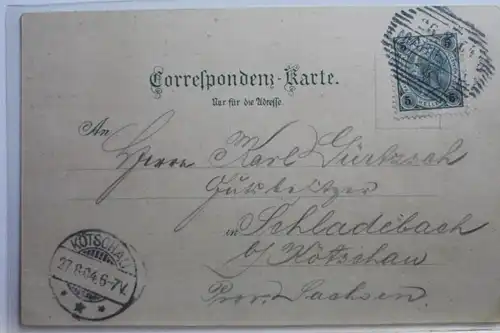 Correspondenz-Karte.
Nur für die Adresse.
An
Herrn Karl Gürtzsch
Gutsbesitzer
in Schladebach
b/ Kötschau
Prov. Sachsen.
KÖTSCHAU
27.8.04. 6-7V.
5 5
5 5